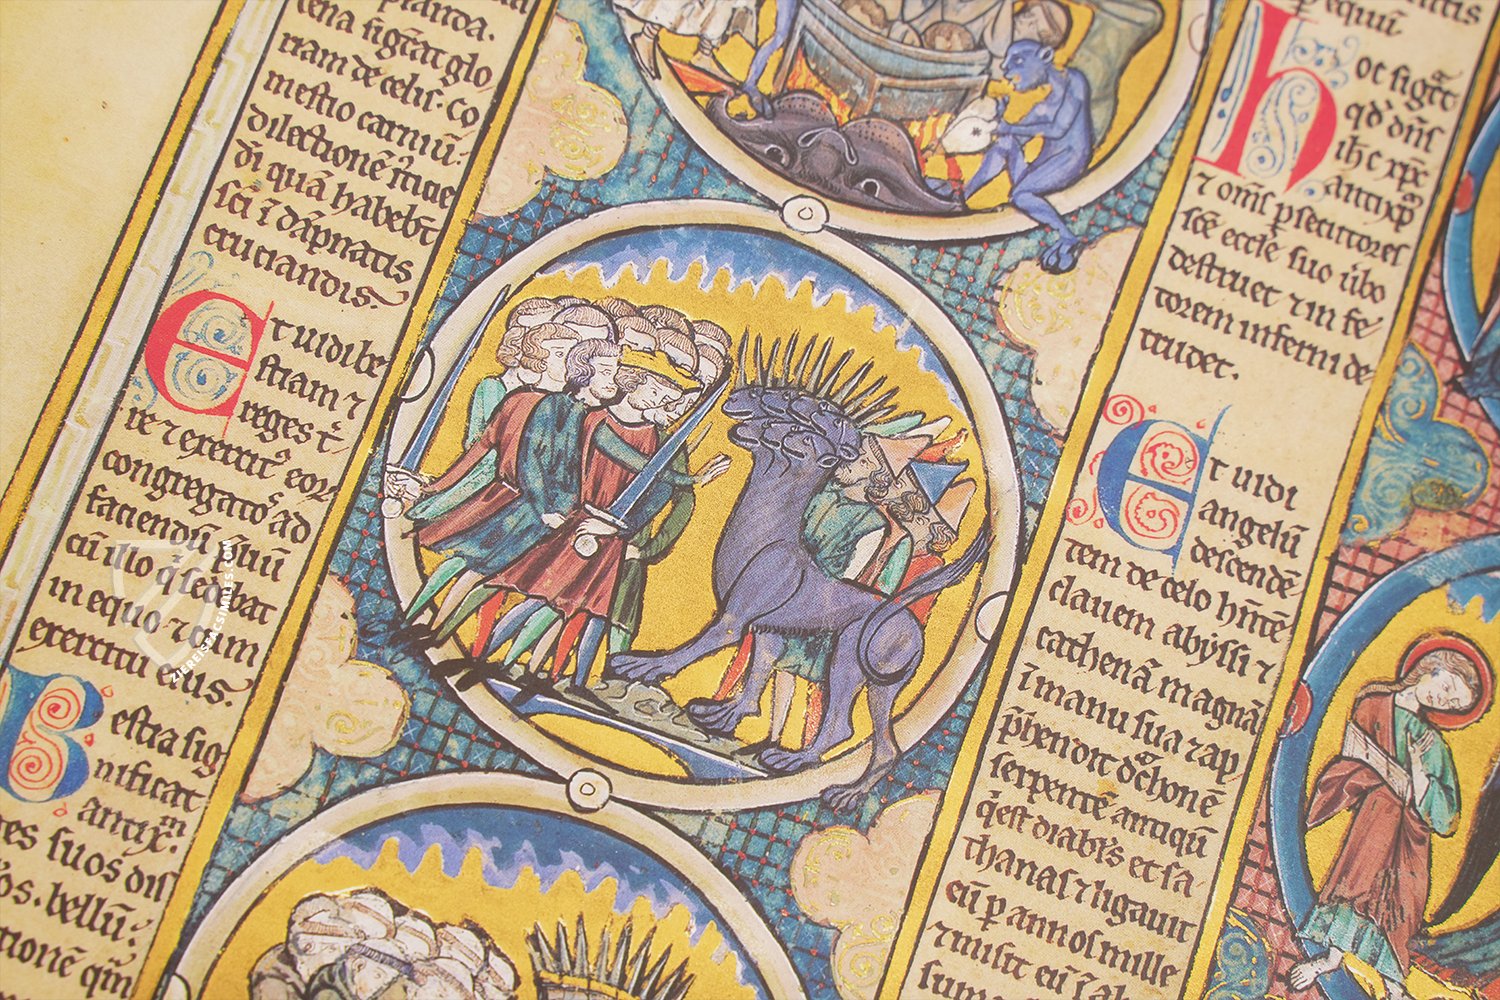 cena sigt̄at glo
riam de celis· co
mestio carniū·
dilectionē
dī quā habebt̄
sc̄i ī dāpnatis
cruciandis·
Et uidi be
stiam ⁊
reges t̄
re ⁊ exercit⁹ eoꝝ
congregatos ad
faciendū p̄liū
cū illo q̄ sedebat
in equo ⁊ cum
exercitu eius·
Bestia sig
nificat
antix̄m·
ges suos dis
os· bellū·
tionē qm̄
p equū·
hoc sigt̄
qd̄ dn̄s
ih̄c xp̄c
antixp̄
⁊ om̄s psecutores
sc̄e eccl̄e suo ūbo
destruet ⁊ in fe
torem inferni de
trudet·
Et uidi
angelū
descendē
tem de celo hn̄tē
clauem abyssi ⁊
cathenā magnā
ī manu sua ⁊ ap
p̄hendit dᵃchonē
serpentē antiquū
q̄ est diabl̄s et sa
thanas ⁊ ligauit
eū p annos mille
⁊ misit eū ī ab
ZIEREISFACSIMILES.COM